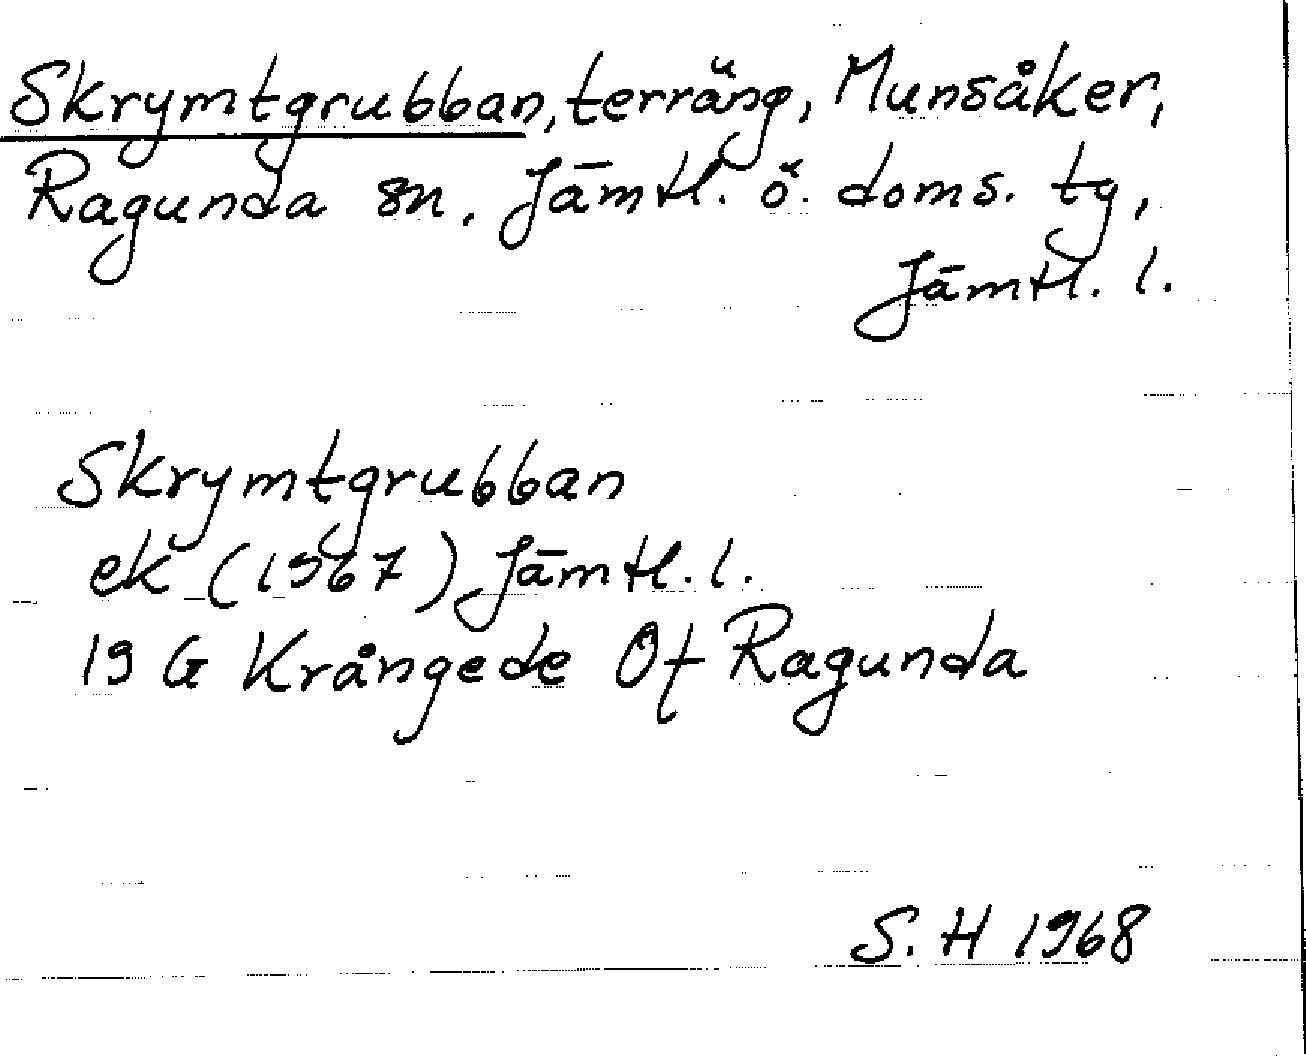 Skrymtgrubban, terräng, Munsåker,
Ragunda sn. Jämtl. ö. doms. tg,
Jämtl. l.
Skrymtgrubban
ek (1967) Jämtl. l.
19 G Krångede Of Ragunda
S. H 1968